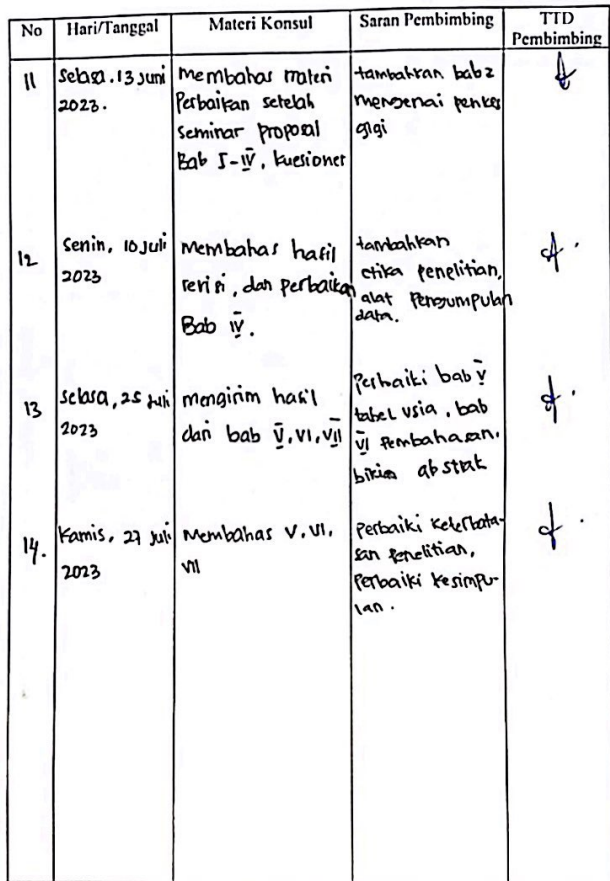 No Hari/Tanggal Materi Konsul Saran Pembimbing TTD Pembimbing
11
Selasa, 13 Juni
2023.
Membahas materi
Perbaikan setelah
Seminar proposal
Bab I-IV, Kuesioner
tambahkan bab 2
mengenai penkes
gigi
12
Senin, 10 Juli
2023
Membahas hasil
revisi, dan perbaikan
Bab IV.
tambahkan
etika penelitian,
alat Pengumpulan
data.
13
Selasa, 25 Juli
2023
mengirim hasil
dari bab V, VI, VII
Perbaiki bab V
tabel usia, bab
VI Pembahasan,
bikin abstrak
14.
Kamis, 27 Juli
2023
Membahas V, VI,
VII
Perbaiki keterbata-
san penelitian,
Perbaiki kesimpu-
lan.